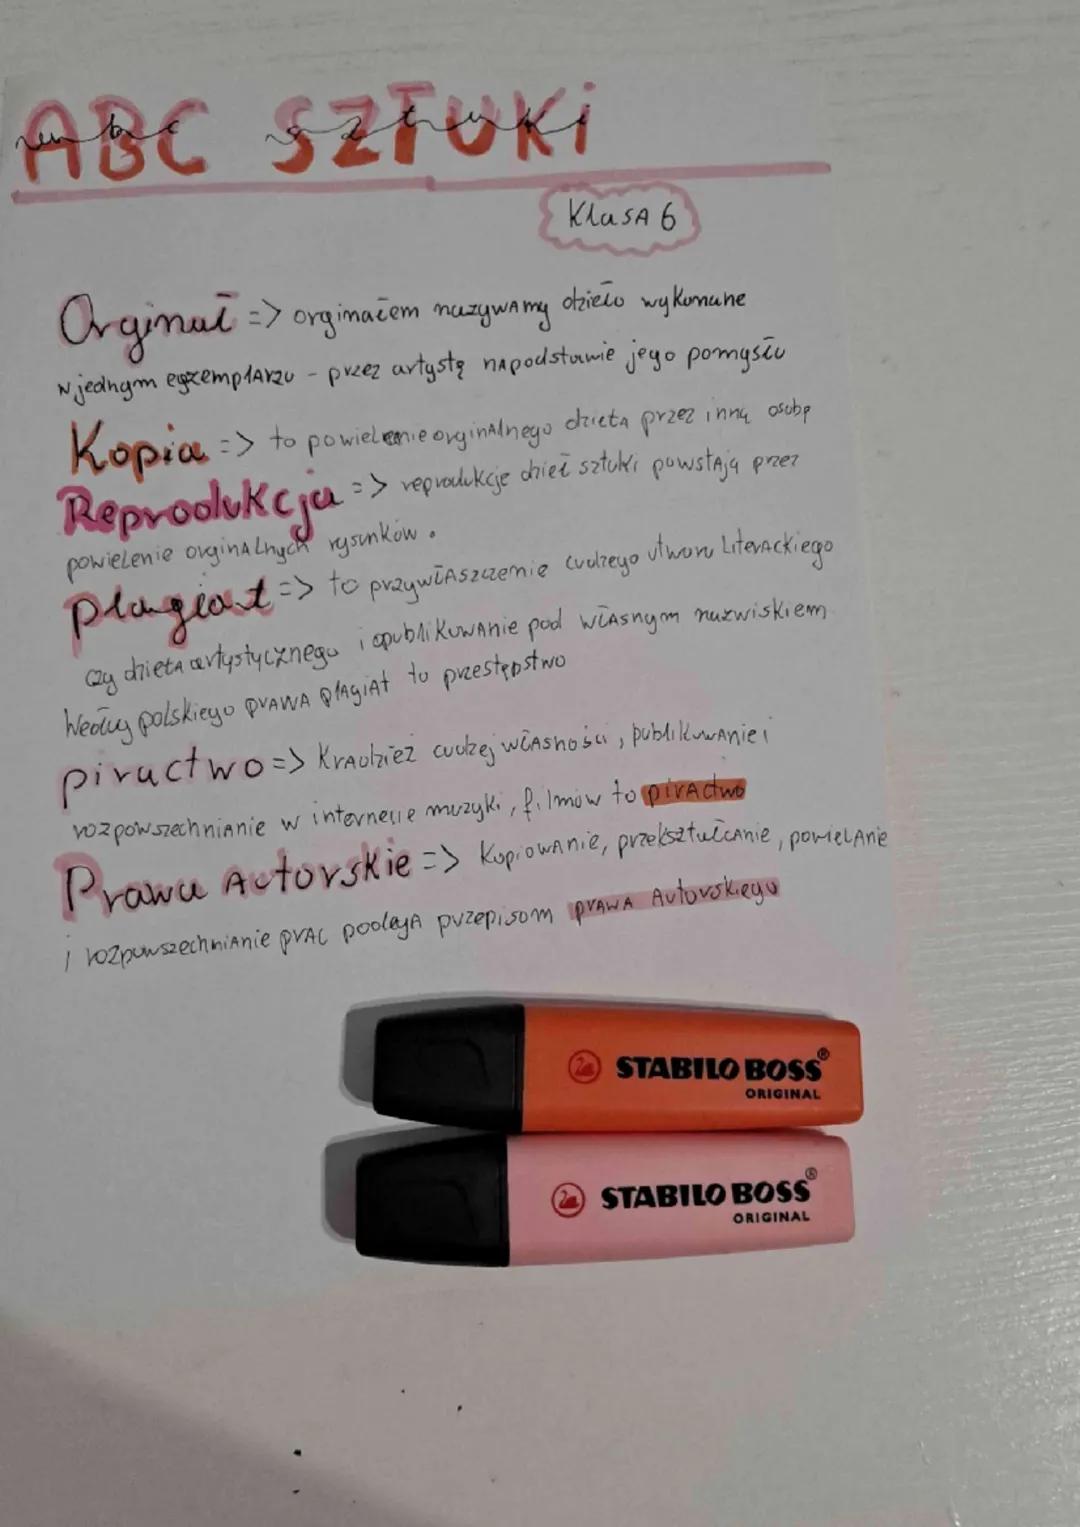 ABC SZTUKi
abc sztuki
Klasa 6
Orginał => orginałem nazywamy dzieło wykonane
w jednym egzemplarzu - przez artystę na podstawie jego pomysłu
Kopia => to powielenie orginalnego dzieła przez inną osobę
Reprodukcja => reprodukcje dzieł sztuki powstają przez
powielenie orginalnych rysunków.
plagiat => to przywłaszczenie cudzego utworu Literackiego
czy dzieła artystycznego i opublikowanie pod własnym nazwiskiem
Według polskiego prawa plagiat to przestępstwo
piractwo => Kradzież cudzej własności, publikowanie i
rozpowszechnianie w internecie muzyki, filmów to piractwo
Prawa Autorskie => Kopiowanie, przekształcanie, powielanie
i rozpowszechnianie prac podlega przepisom prawa Autorskiego
STABILO BOSS®
ORIGINAL
STABILO BOSS®
ORIGINAL